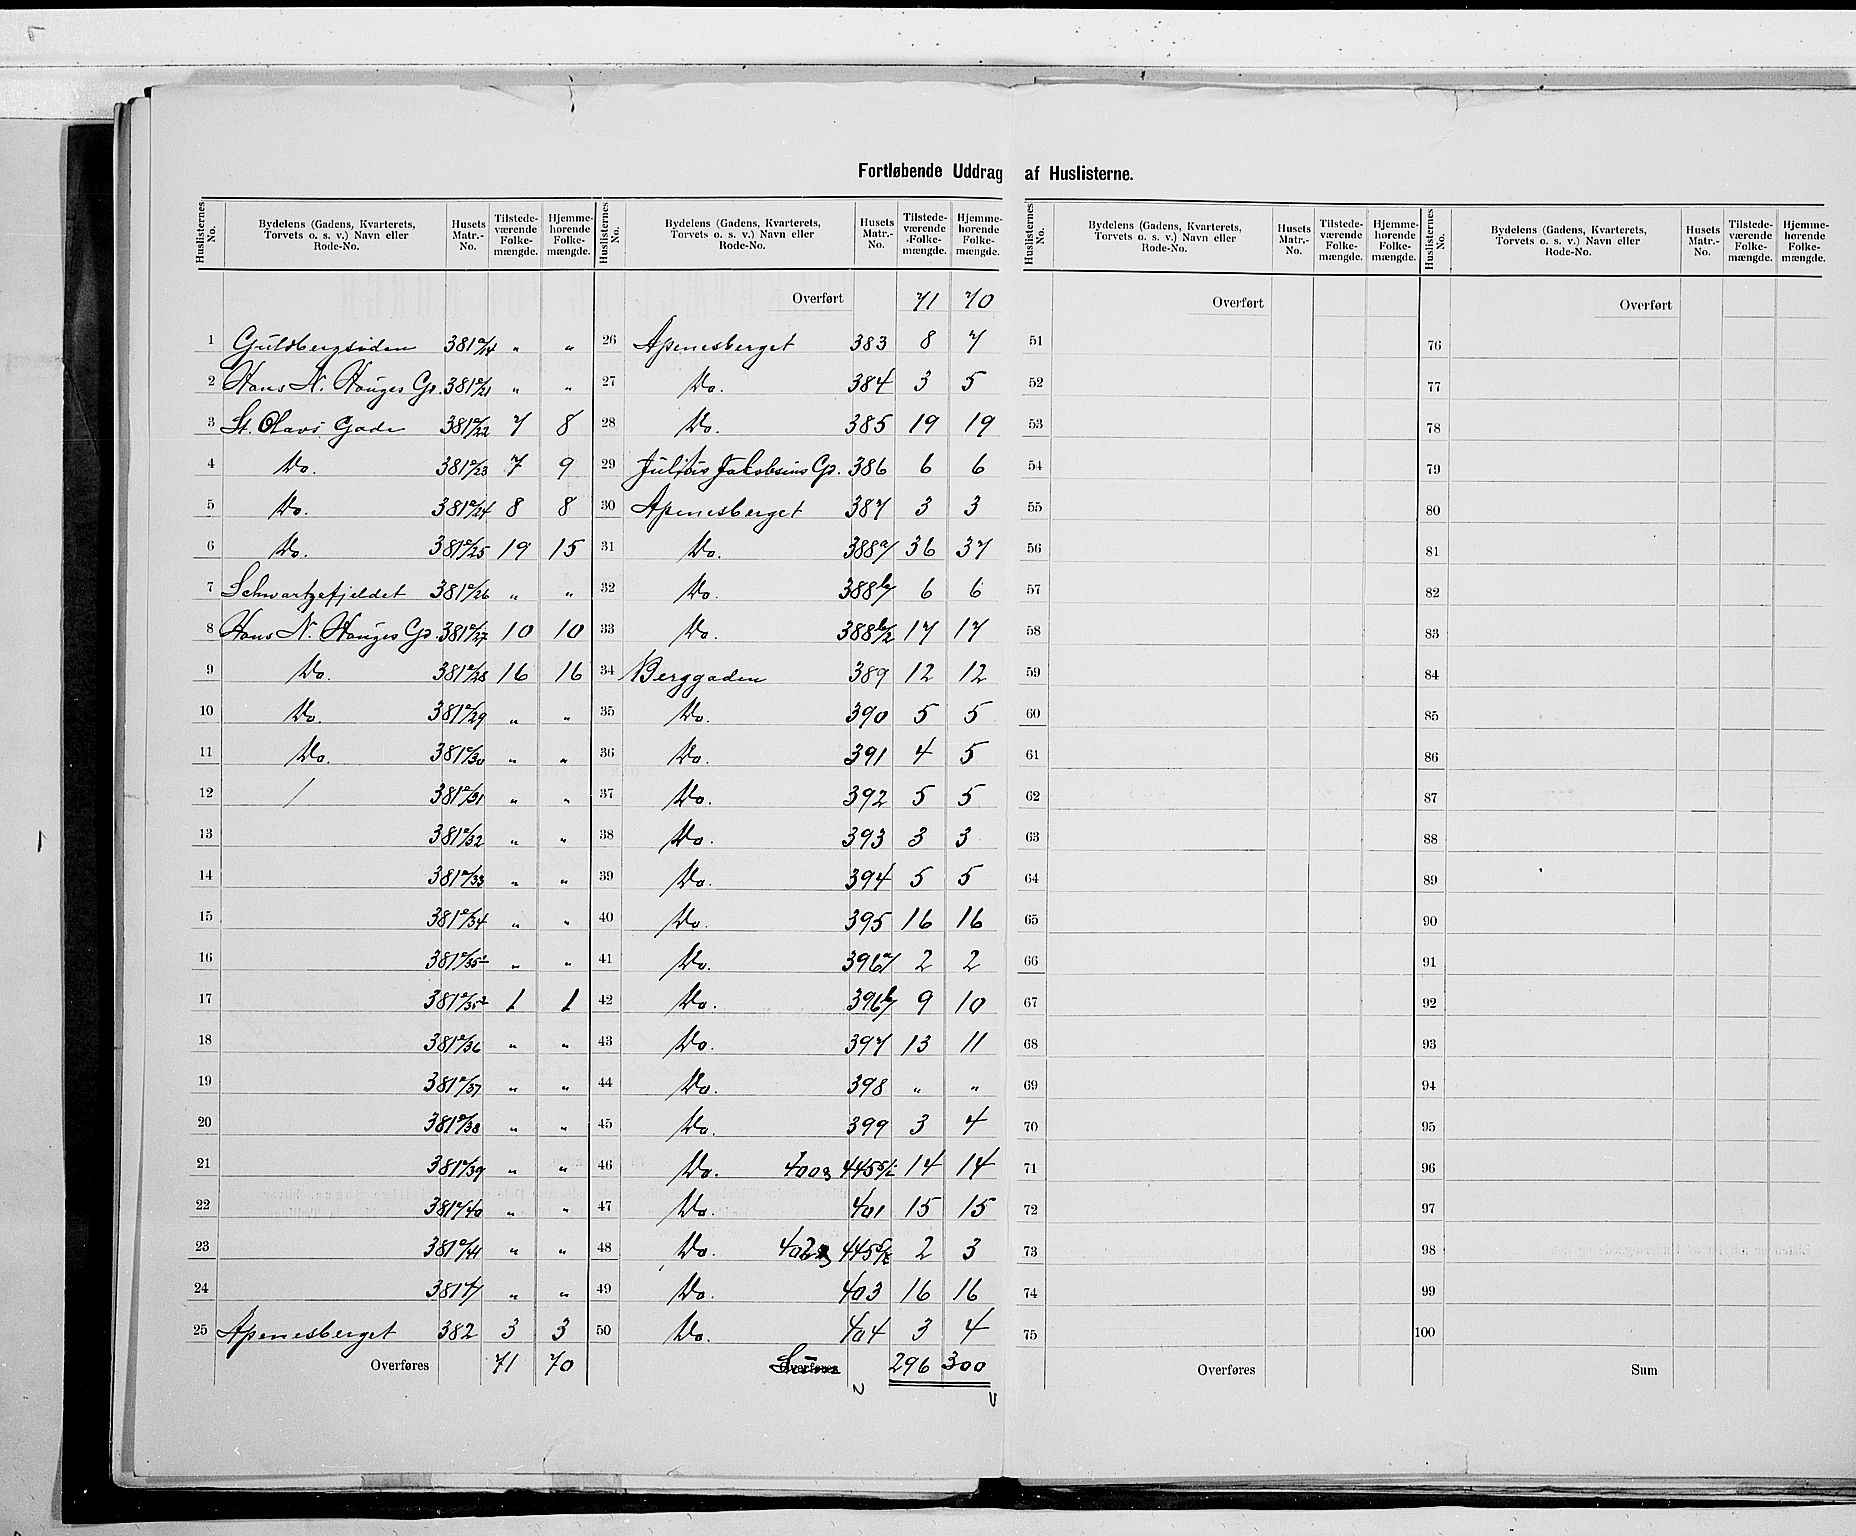 Fortløbende Uddrag af Huslisterne.
Huslisternes No. Bydelens (Gadens, Kvarterets, Torvets o. s. v.) Navn eller Rode-No. Husets Matr.-No. Tilstedeværende Folkemængde. Hjemmehørende Folkemængde.
1 Guldbergsiden 381a/4 " "
2 Hans N. Hauges Gd. 381a/21 " "
3 St. Olavs Gade 381a/22 7 8
4 Do. 381a/23 7 9
5 Do. 381a/24 8 8
6 Do. 381a/25 19 15
7 Schwartzefjeldet 381a/26 " "
8 Hans N. Hauges Gd. 381a/27 10 10
9 Do. 381a/28 16 16
10 Do. 381a/29 " "
11 Do. 381a/30 " "
12 / 381a/31 " "
13 381a/32 " "
14 381a/33 " "
15 381a/34 " "
16 381a/35 " "
17 381a/35 1 1
18 381a/36 " "
19 381a/37 " "
20 381a/38 " "
21 381a/39 " "
22 381a/40 " "
23 381a/41 " "
24 " "
25 Apenesberget 382 3 3
Overføres 71 70
Huslisternes No. Bydelens (Gadens, Kvarterets, Torvets o. s. v.) Navn eller Rode-No. Husets Matr.-No. Tilstedeværende Folkemængde. Hjemmehørende Folkemængde.
Overført 71 70
26 Apenesberget 383 8 7
27 Do. 384 3 5
28 Do. 385 19 19
29 Julius Jakobsens Gd. 386 6 6
30 Apenesberget 387 3 3
31 Do. 388a/ 36 37
32 Do. 388b/ 6 6
33 Do. 388b/2 17 17
34 Berggaden 389 12 12
35 Do. 390 5 5
36 Do. 391 4 5
37 Do. 392 5 5
38 Do. 393 3 3
39 Do. 394 5 5
40 Do. 395 16 16
41 Do. 396a/ 2 2
42 Do. 396b/ 9 10
43 Do. 397 13 11
44 Do. 398 " "
45 Do. 399 3 4
46 Do. 400 14 14
47 Do. 401 15 15
48 Do. 402 2 3
49 Do. 403 16 16
50 Do. 404 3 4
Overføres Sum 296 300
Huslisternes No. Bydelens (Gadens, Kvarterets, Torvets o. s. v.) Navn eller Rode-No. Husets Matr.-No. Tilstedeværende Folkemængde. Hjemmehørende Folkemængde.
Overført
51
52
53
54
55
56
57
58
59
60
61
62
63
64
65
66
67
68
69
70
71
72
73
74
75
Overføres
Huslisternes No. Bydelens (Gadens, Kvarterets, Torvets o. s. v.) Navn eller Rode-No. Husets Matr.-No. Tilstedeværende Folkemængde. Hjemmehørende Folkemængde.
Overført
76
77
78
79
80
81
82
83
84
85
86
87
88
89
90
91
92
93
94
95
96
97
98
99
100
Sum